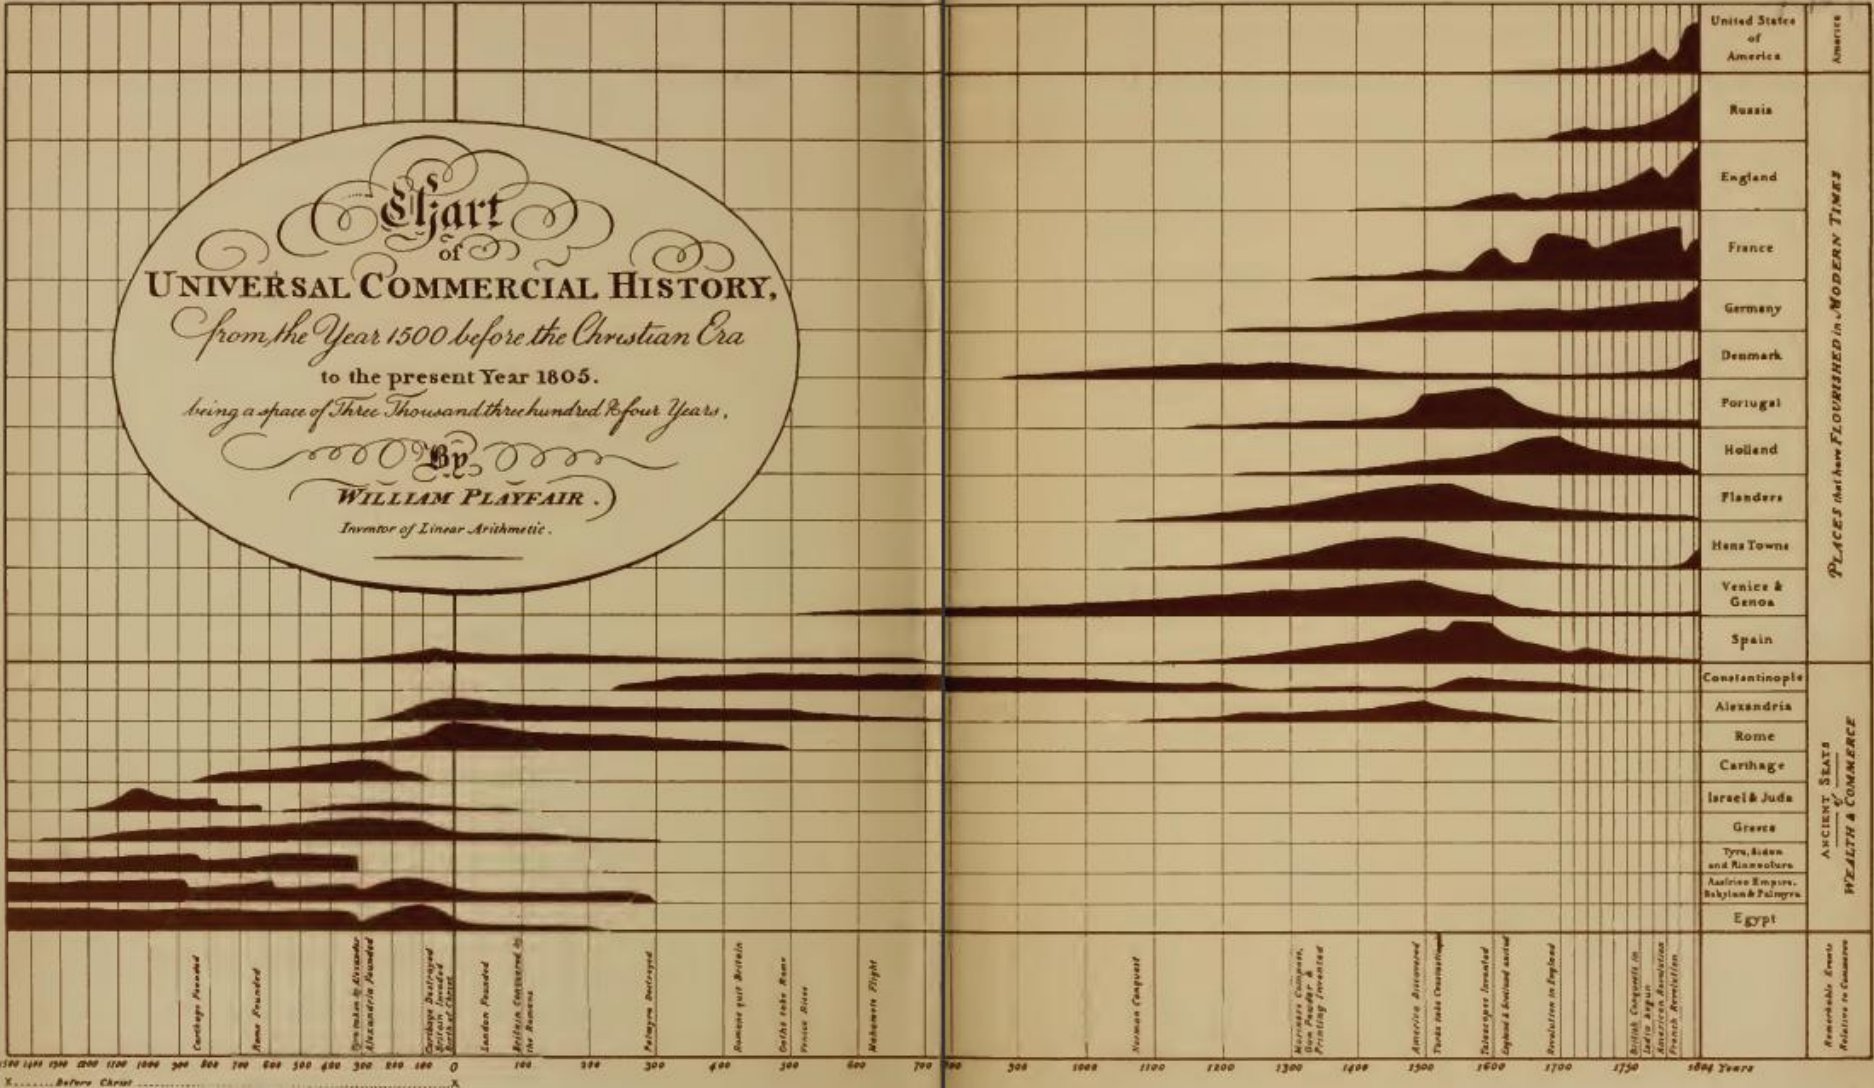 Chart
of
UNIVERSAL COMMERCIAL HISTORY,
from the Year 1500 before the Christian Era
to the present Year 1805.
being a space of Three Thousand three hundred & four Years,
By
WILLIAM PLAYFAIR.
Inventor of Linear Arithmetic.
United States
of
America
Russia
England
France
Germany
Denmark
Portugal
Holland
Flanders
Hans Towns
Venice &
Genoa
Spain
Constantinople
Alexandria
Rome
Carthage
Israel & Juda
Greece
Tyre, Sidon
and
Egypt
America
PLACES that have FLOURISHED in MODERN TIMES
ANCIENT SEATS
of
WEALTH & COMMERCE
Remarkable Events
Relative to Commerce
Carthage Founded
Rome Founded
Tyre taken by Alexander
Alexandria Founded
Carthage Destroyed
Britain Invaded
Birth of Christ
London Founded
Britain Conquered by
the Romans
Palmyra Destroyed
Romans quit Britain
Goths take Rome
Venice Rises
Mahomets Flight
Norman Conquest
Mariners Compass,
Gun Powder &
Printing Invented
America Discovered
Turks take Constantinople
Telescopes Invented
England & Scotland united
Revolution in England
British Conquests in
India begun
American Revolution
French Revolution
1500 1400 1300 1200 1100 1000 900 800 700 600 500 400 300 200 100 0 100 200 300 400 500 600 700 800 900 1000 1100 1200 1300 1400 1500 1600 1700 1750 1804 Years
X Before Christ X